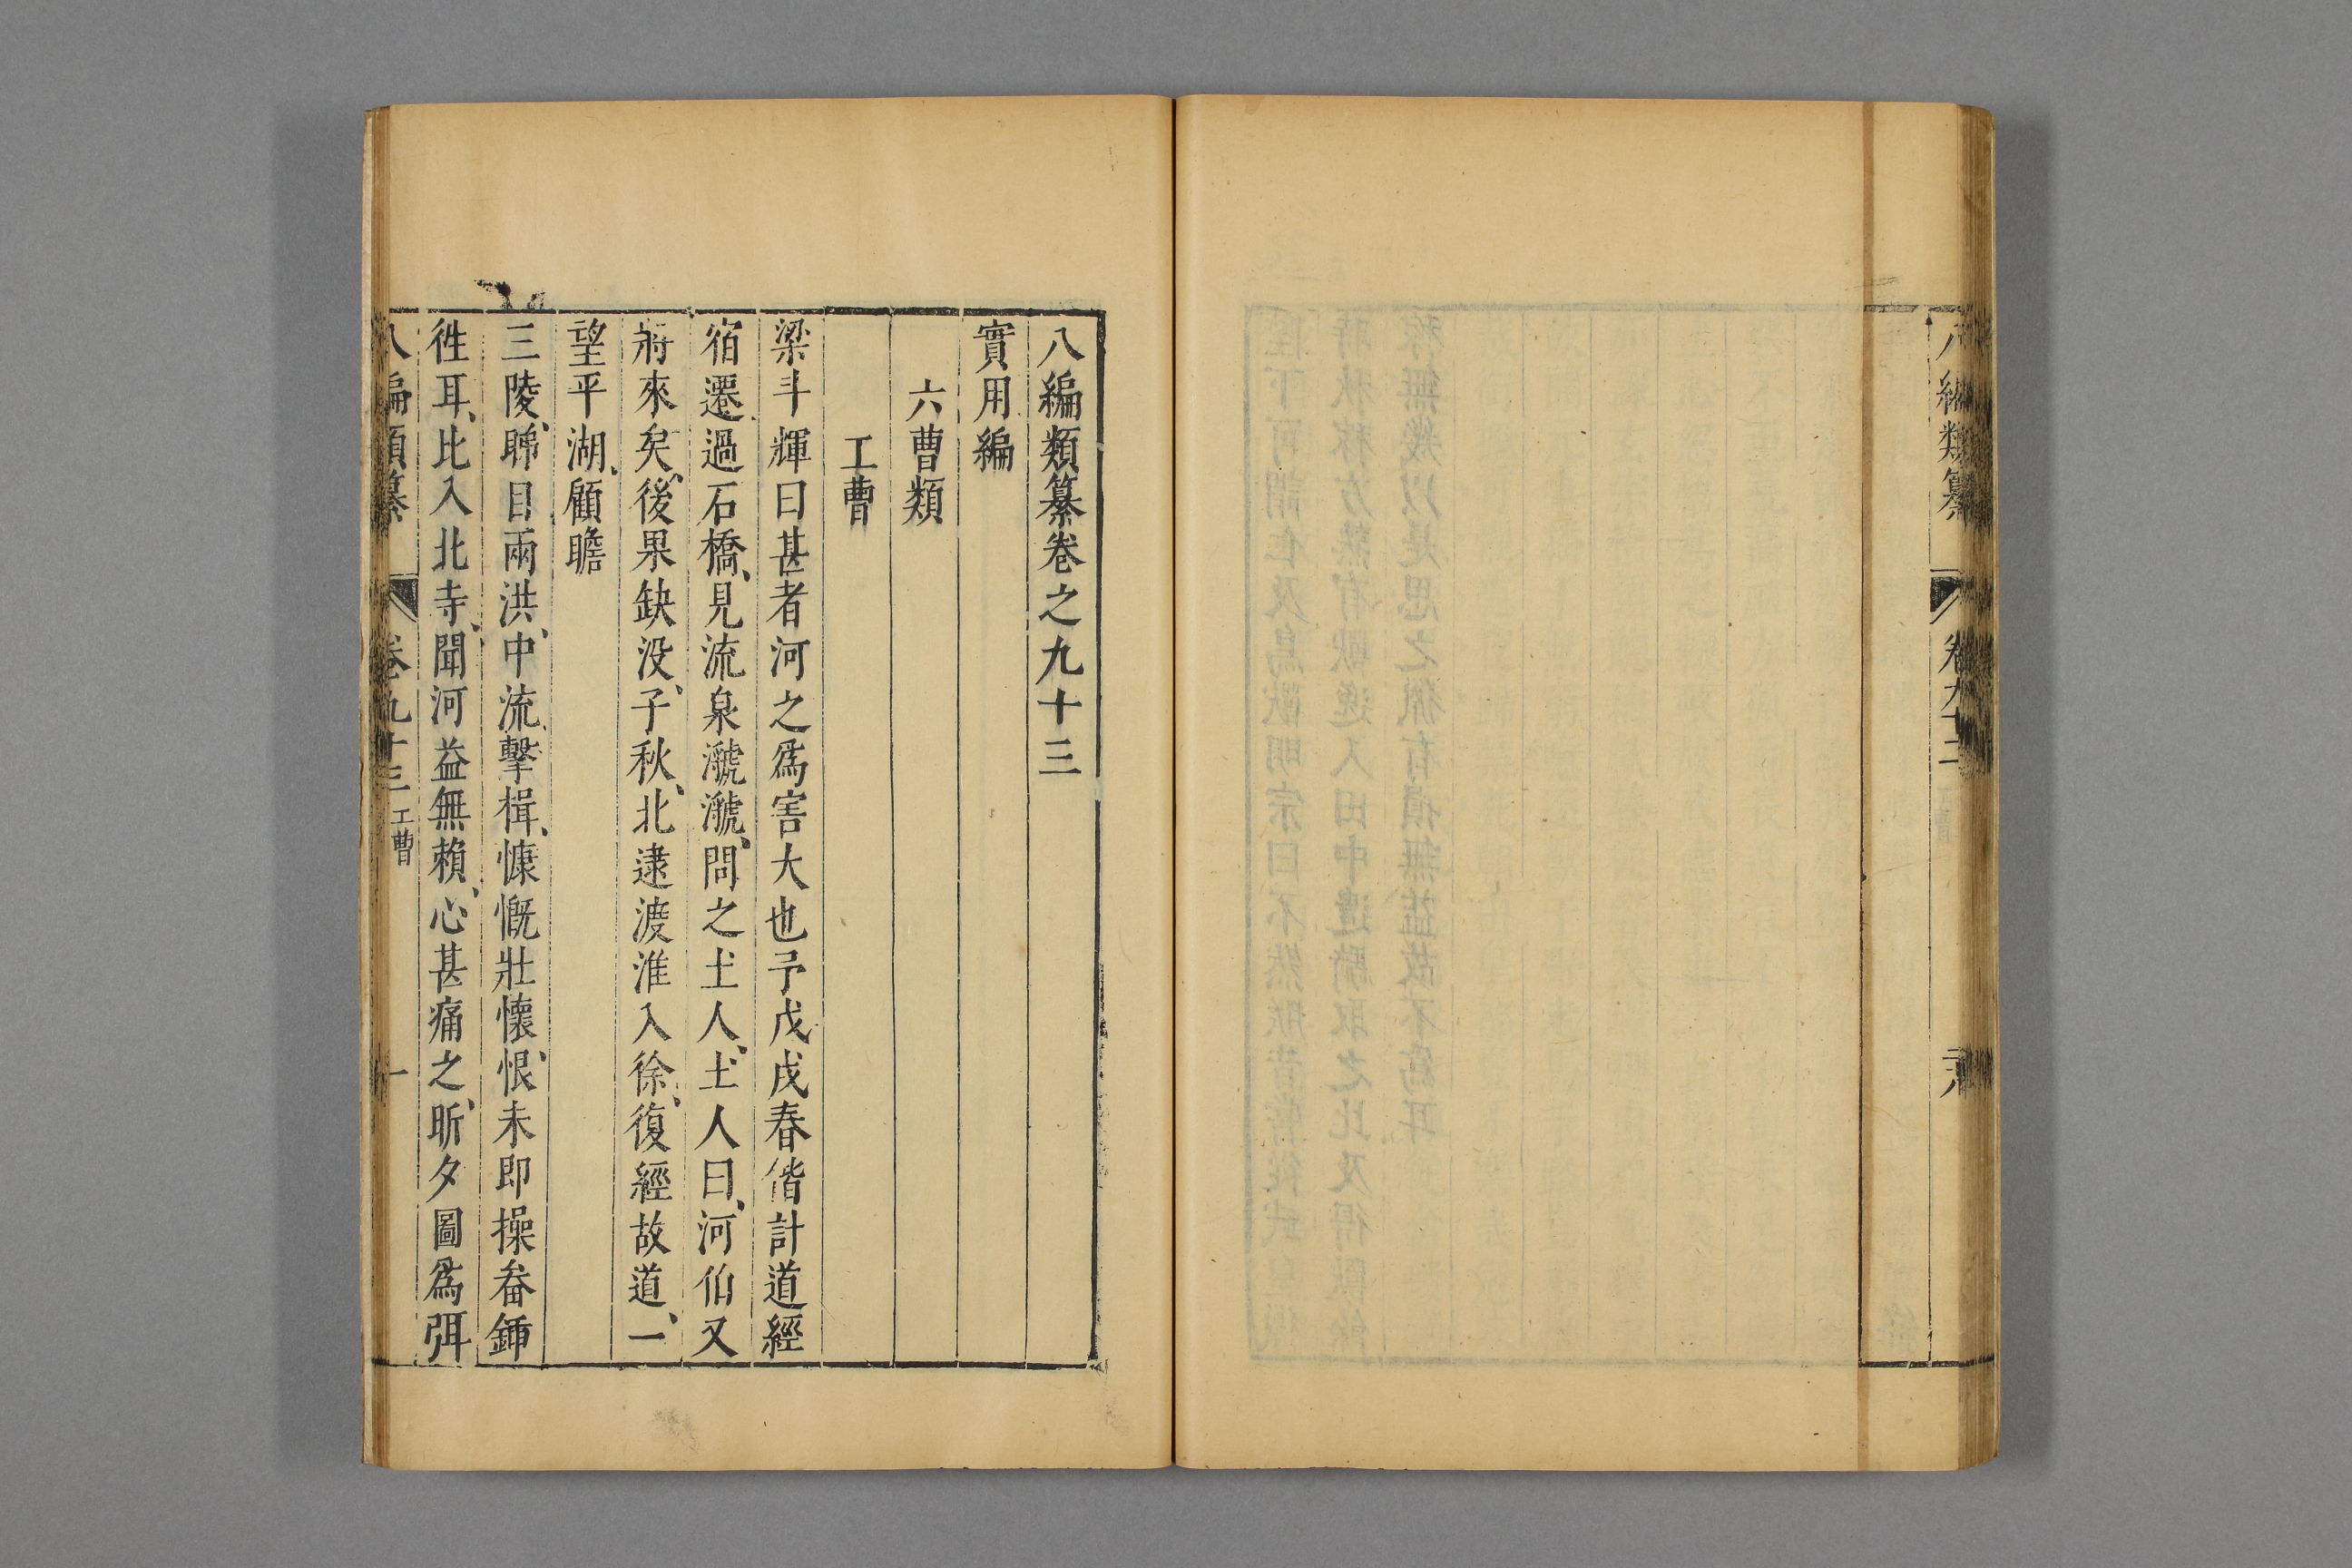 八編類纂
卷九十二
八編類纂卷之九十三
實用編
六曹類
工曹
梁斗輝曰甚者河之爲害大也予戊戌春偕計道經
宿遷、過石橋、見流泉㶁㶁、問之土人、土人曰、河伯又
將來矣、後果缺没、子秋、北逮渡淮入徐、復經故道、一
望平湖、顧瞻
三陵、睇目兩洪、中流、擊楫、慷慨壯懷、恨未即操畚鍤
徃耳、比入北寺、聞河益無賴、心甚痛之、昕夕圖爲弭
八編類纂
卷九十三
工曹
一